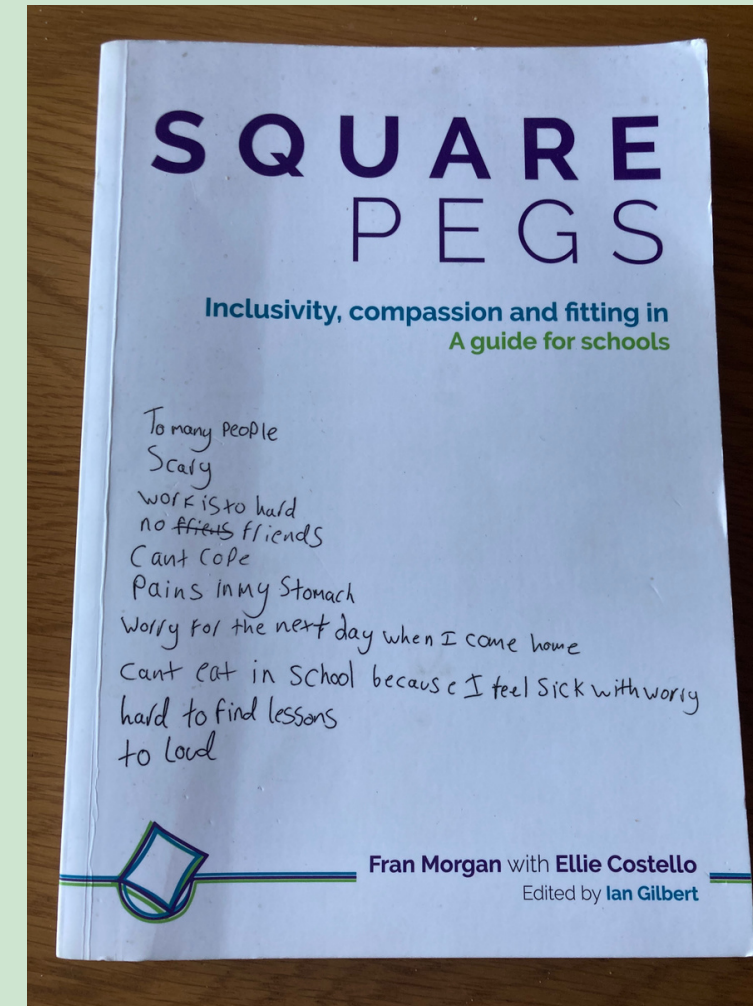 SQUARE
PEGS
Inclusivity, compassion and fitting in
A guide for schools
To many people
Scary
work is to hard
no friens friends
Cant cope
Pains in my Stomach
Worry for the next day when I come home
Cant eat in school because I feel Sick with worry
hard to find lessons
to loud
Fran Morgan with Ellie Costello
Edited by Ian Gilbert